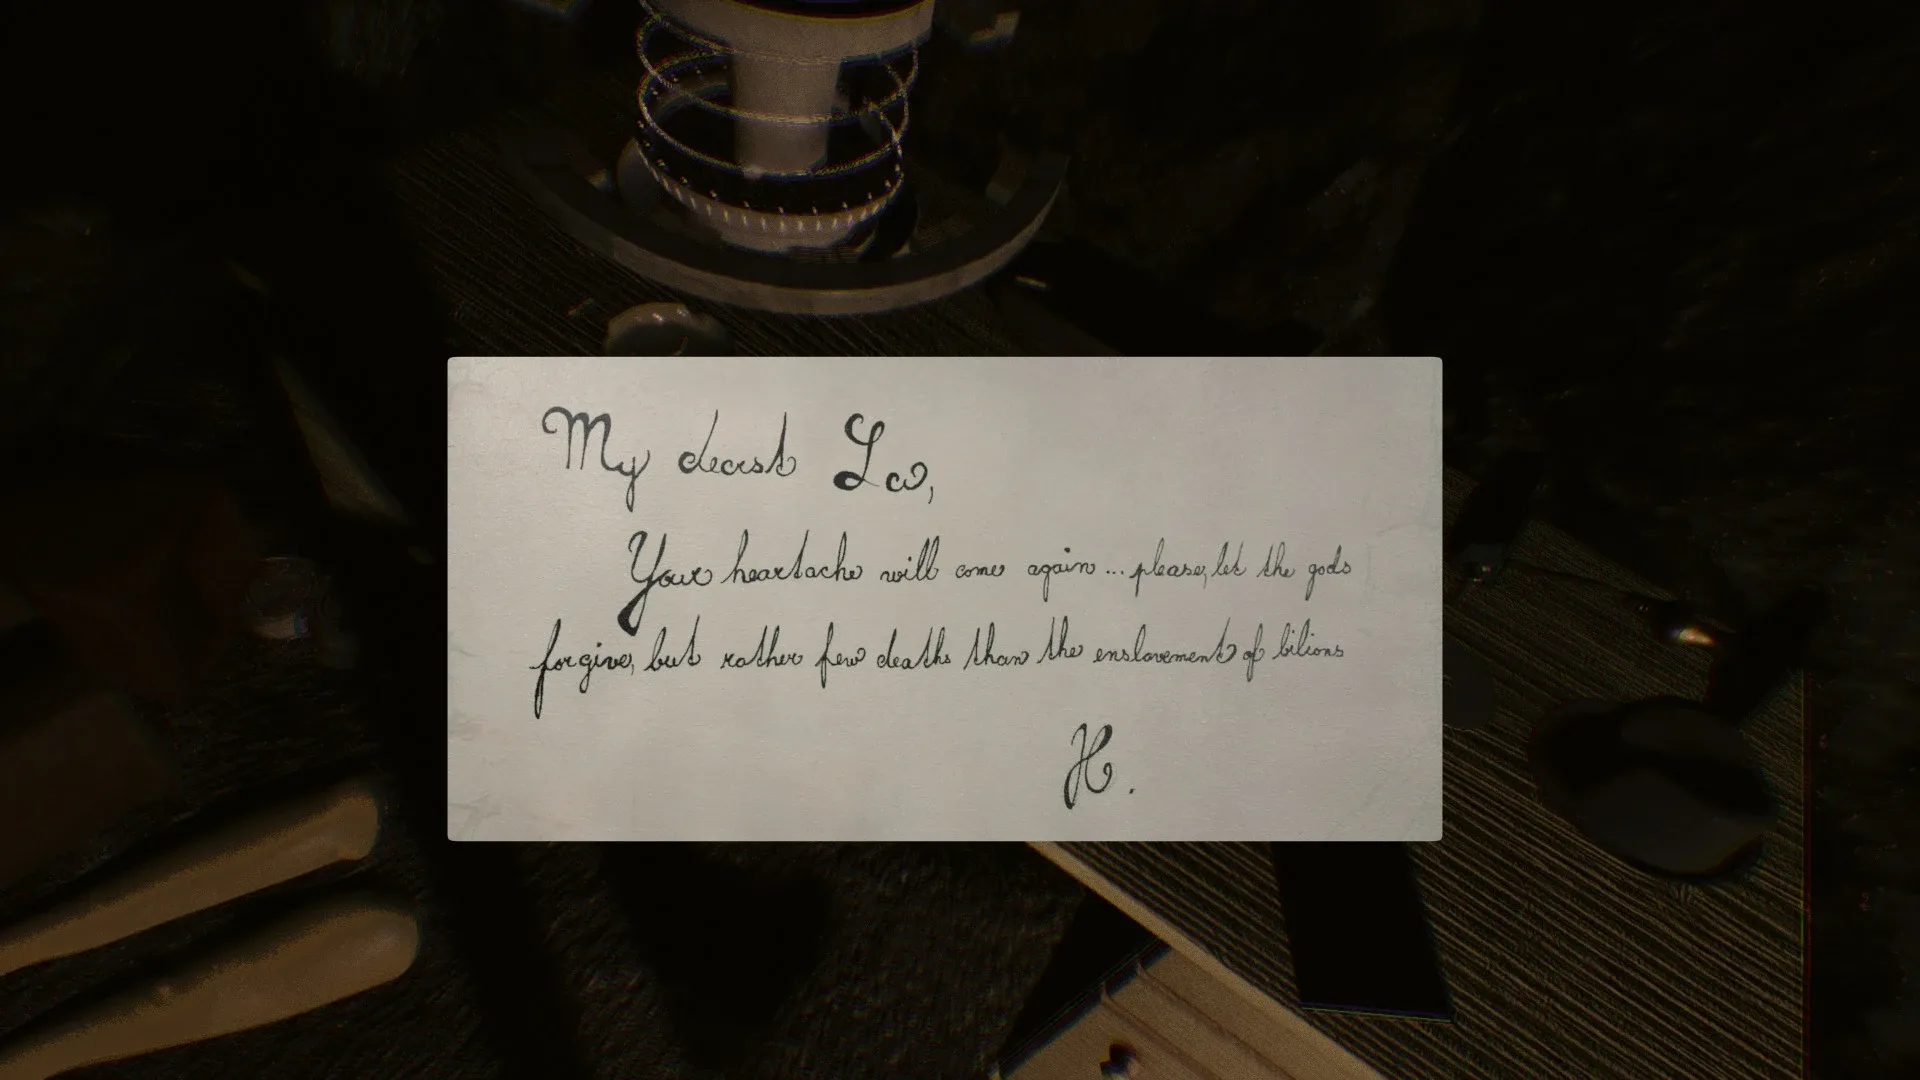 My dearst La,
Your heartache will come again... please, let the gods
forgive, but rather few deaths than the enslavement of bilions
H.